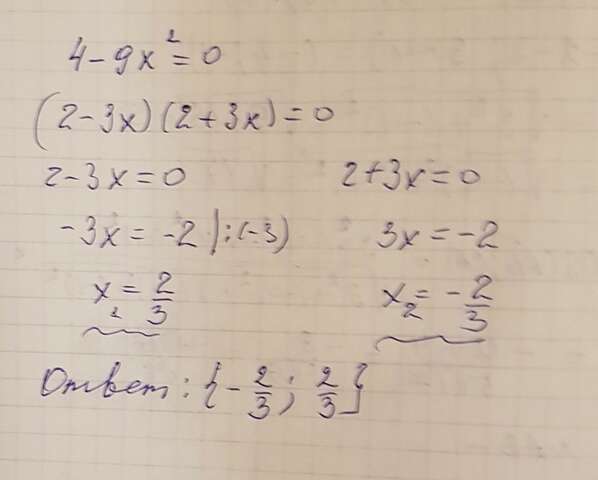 4 - 9x² = 0
(2 - 3x)(2 + 3x) = 0
2 - 3x = 0    2 + 3x = 0
-3x = -2 | : (-3)    3x = -2
x₁ = 2/3    x₂ = -2/3
Ответ: {-2/3; 2/3}